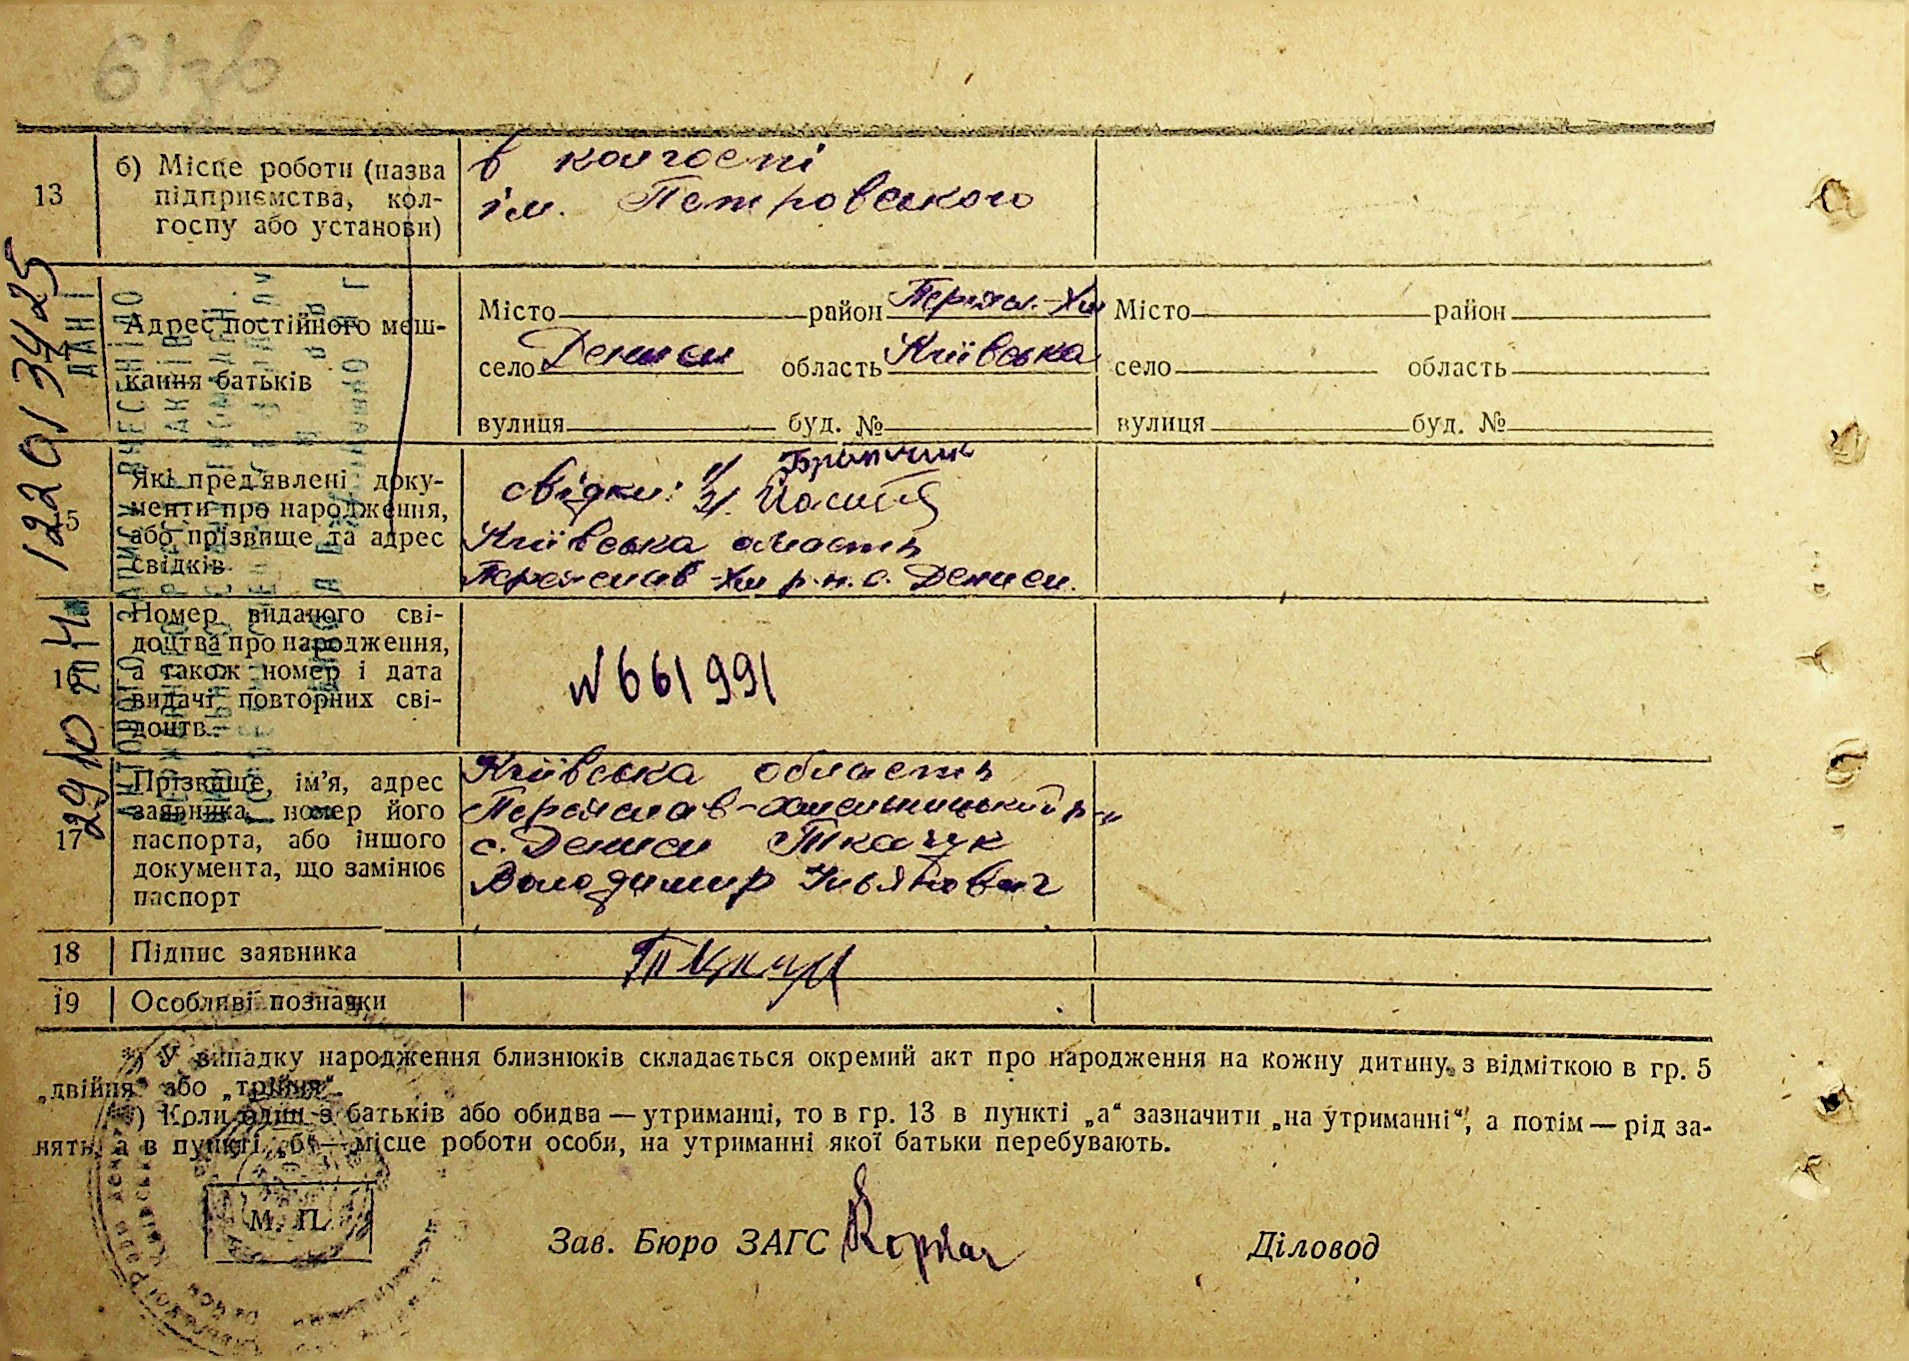 61зв
13
б) Місце роботи (назва
підприємства, кол-
госпу або установи)
в колгоспі
ім. Петровського
Адрес постійного меш-
кання батьків
Місто район Переясл.-Хм
село Дениси область Київська
вулиця буд. №
Місто район
село область
вулиця буд. №
5
Які пред'явлені доку-
менти про народження,
або прізвище та адрес
свідків
свідки: 1/
2/
Київська область
Переяслав-Хм р-н. с. Дениси.
16
Номер виданого сві-
доцтва про народження,
а також номер і дата
видачі повторних сві-
доцтв
N 661991
17
Прізвище, ім'я, адрес
заявника, номер його
паспорта, або іншого
документа, що замінює
паспорт
Київська область
Переяслав-Хмельницький р-н
с. Дениси Ткачук
Володимир
18 Підпис заявника
19 Особливі познавки
*) У випадку народження близнюків складається окремий акт про народження на кожну дитину, з відміткою в гр. 5
„двійня“ або „трійня“.
) Коли один з батьків або обидва — утриманці, то в гр. 13 в пункті „а“ зазначити „на утриманні“, а потім — рід за-
нять, а в пункті „б“ — місце роботи особи, на утриманні якої батьки перебувають.
М. П.
Зав. Бюро ЗАГС
Діловод